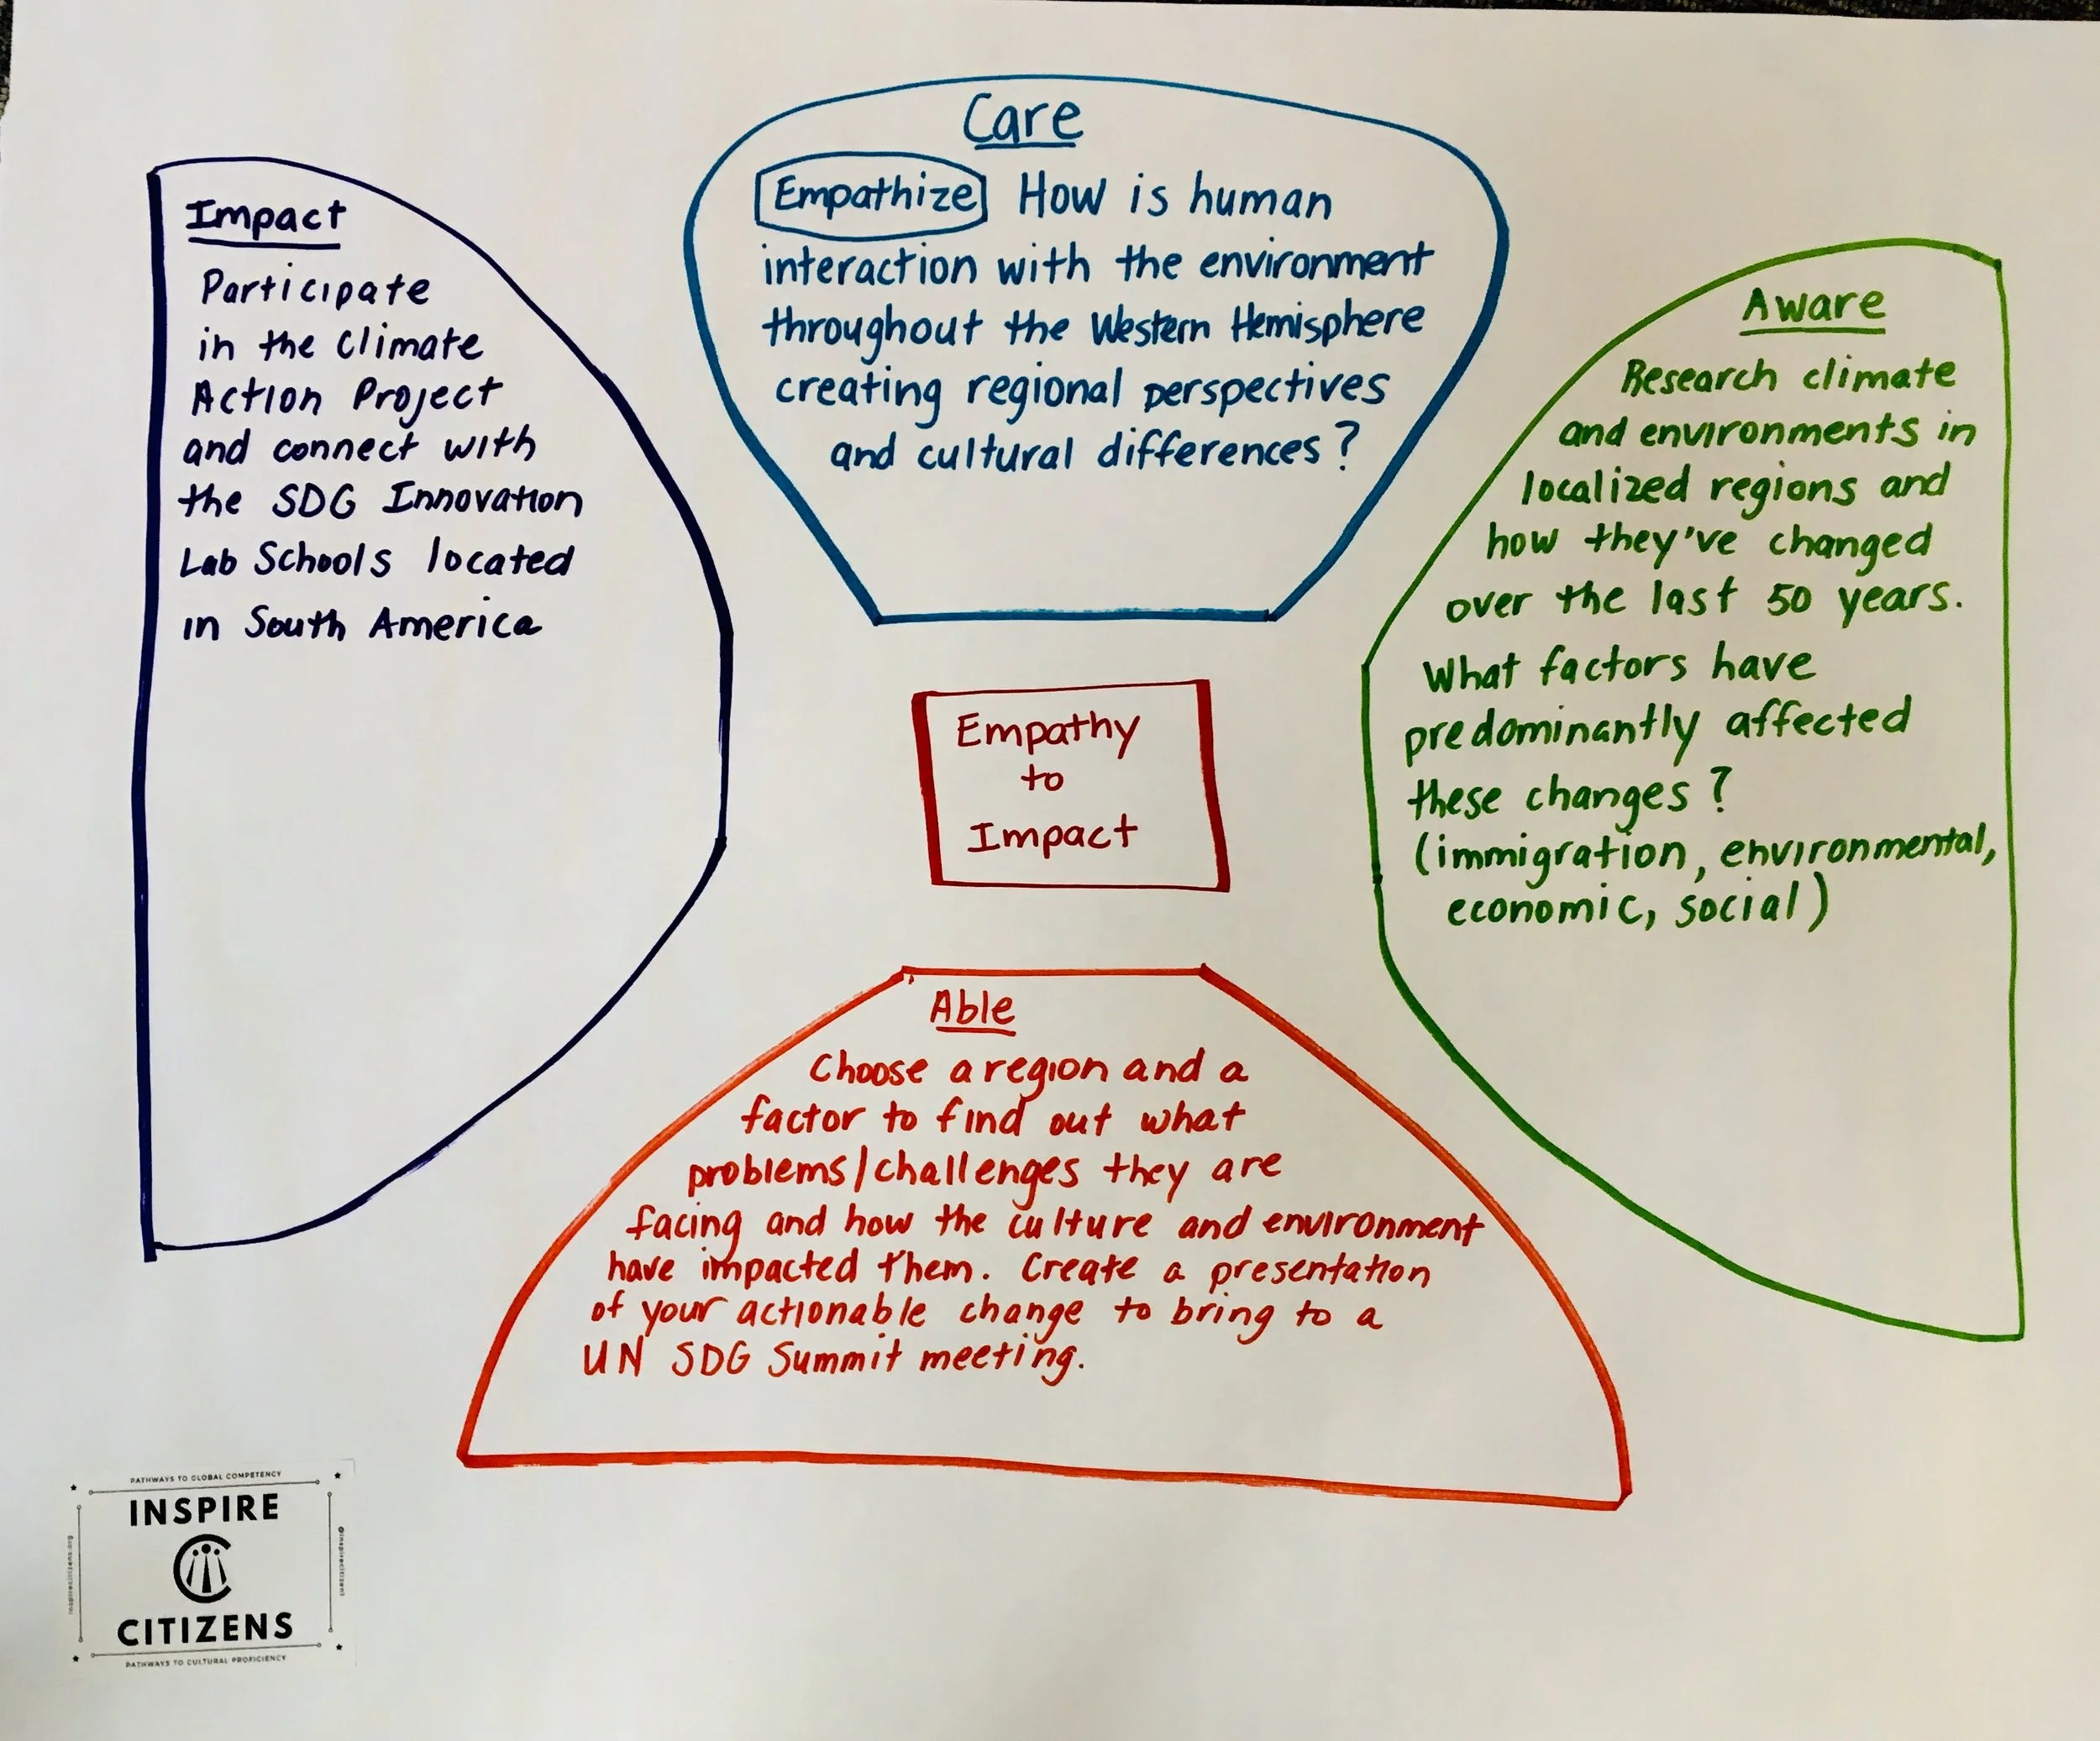 Care
Empathize How is human
interaction with the environment
throughout the Western Hemisphere
creating regional perspectives
and cultural differences?
Impact
Participate
in the Climate
Action Project
and connect with
the SDG Innovation
Lab Schools located
in South America
Aware
Research climate
and environments in
localized regions and
how they've changed
over the last 50 years.
What factors have
predominantly affected
these changes?
(immigration, environmental,
economic, social)
Empathy
to
Impact
Able
Choose a region and a
factor to find out what
problems/challenges they are
facing and how the culture and environment
have impacted them. Create a presentation
of your actionable change to bring to a
UN SDG Summit meeting.
PATHWAYS TO GLOBAL COMPETENCY
INSPIRE
CITIZENS
PATHWAYS TO CULTURAL PROFICIENCY
inspirecitizens.org
@inspirecitizens1